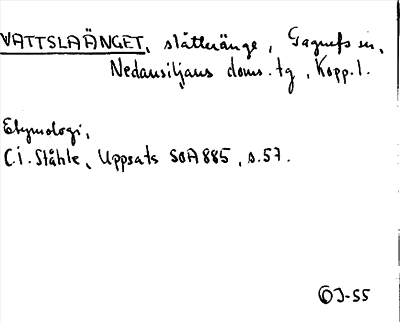 VATTSLAÄNGET, slåtteränge, Gagnefs sn,
Nedansiljans doms. tg, Kopp. l.
Etymologi,
C.I. Ståhle, Uppsats SOA 885, s. 57.
J-55